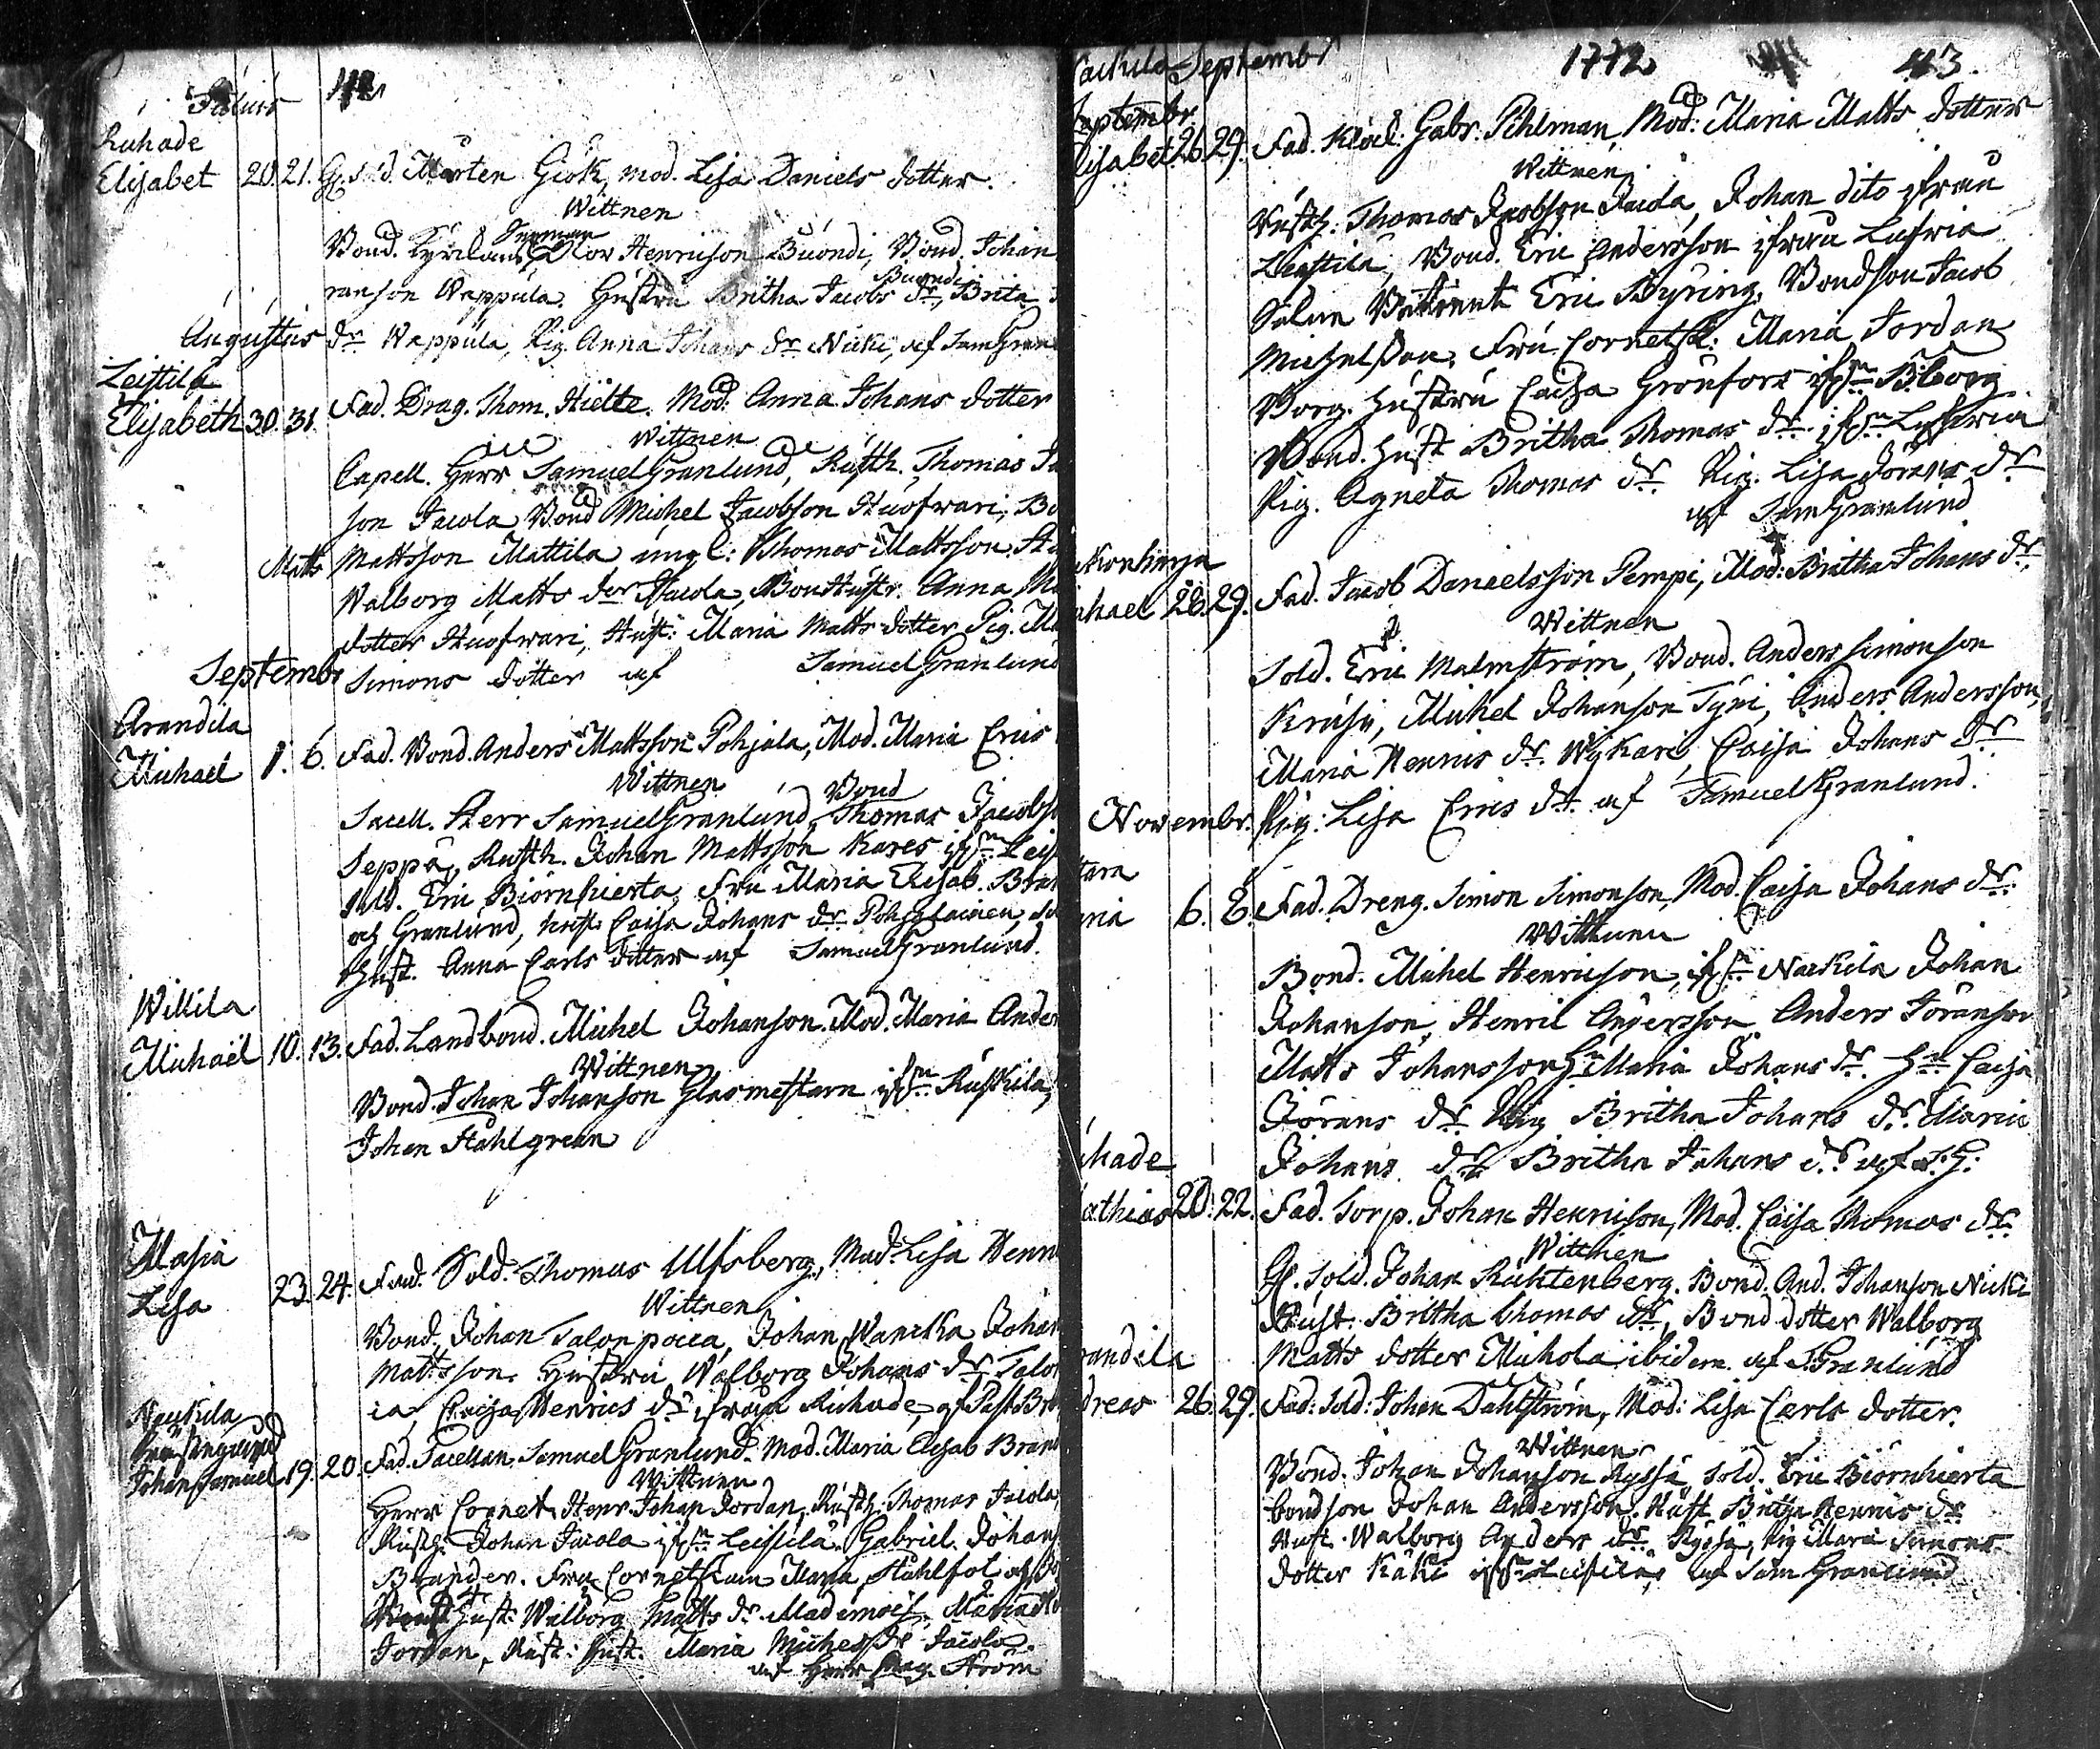 Julius 42
Ruhade
Elisabet 20. 21. Gl. Sold. Mårten Giök, mod. Lisa Daniels dotter.
Wittnen
Bond. Olov Henricson Buondi, Bond. Johan
ranson Wappula. Hustru Britha Jacobs dr Buondi, Brita
Augustus dr Wappula, Pig. Anna Johans dr Nicki, af Sam Gran
Leistila
Elisabeth 30. 31. Fad. Drag. Thom. Hielte. Mod. Anna Johans dotter
Wittnen
Capell. Herr Samuel Granlund, Rusth. Thomas Ja
son Jacola Bond Michel Jacobson Huofwari, Bo
Matts Mattsson Mattila ungl: Thomas Mattsson
Walborg Matts dor Jacola, Bondhustr. Anna Ma
dotter Huofwari, Hust: Maria Matts dotter Pig. Ma
Septembr Simons dotter af Samuel Granlund
Arandila
Michael 1. 6. Fad. Bond. Anders Mattsson Pohjala, Mod. Maria Erics
Wittnen Bond
Sacell. Herr Samuel Granlund, Thomas Jacobs
Seppä, Rusth. Johan Mattsson Kares ifrn Leis
Sold. Eric Biörnhierta, Fru Maria Elisab. Bran
och Granlund, hust. Caisa Johans dr
Hust. Anna Carls dotter af Samuel Granlund.
Willila
Michaël 10. 13. Fad. Landbond. Michel Johanson. Mod. Maria Ander
Wittnen
Bond. Johan Johanson Glasmestarn ifrn Ruskila,
Johan Stahlgreen
Masia
Lisa 23. 24. Fad. Sold. Thomas Ulfsberg, Mod. Lisa Henri
Wittnen
Bond. Johan Talonpoica, Johan Wanckka Johan
Mattsson. Hustru Walborg Johans dr Talon
ca, Caisa Henrics dr ifrån Ruhade, af Past. Br
Naukila
Johan Samuel 19. 20. Fad. Sacellan. Samuel Granlund. Mod. Maria Elisab Brand
Wittnen
Herr Cornet Henr Johan Jordan, Rusth. Thomas Jacola,
Rusth. Johan Jacola ifrn Leistila. Gabriel Johans
Brander. Fru Cornetskan Maria Stahlfot och
Hust. Walborg Matts dr. Mademois. Maria
Jordan, Rust: hust. Maria Michels dr Jacola.
af Herr Mag. Ström
Naukila Septembr 1772 43
Septembr
Elisabet 26. 29. Fad. Klock: Gabr. Pihlman, Mod: Maria Matts dotter
Wittnen
Rusth. Thomas Jacobson Jacola, Johan dito ifrån
Leistila, Bond. Eric Andersson ifrån Lusria
Eric Byring, Bondson Jacob
Michelsson, Fru Cornetsk: Maria Jordan
Borg. hustru Caisa Grönfors ifrn Biborg
Bond. hust Britha Thomas dr. ifrn Lusria
Pig. Agneta Thomas dr. Pig. Lisa Jörans dr
af Sam Granlund
ckonharja
ichael 28. 29. Fad. Jacob Danielsson Pempi, Mod: Britha Johans dr.
Wittnen
Sold. Eric Malmström, Bond. Anders Simonson
Krusi, Michel Johanson Tyni, Anders Andersson,
Maria Henrics dr. Wykari, Caisa Johans dr
Novembr. Pig: Lisa Erics dr. af Samuel Granlund.
ttara
aria 6. 8. Fad. Dreng. Simon Simonson, Mod. Caisa Johans dr.
Wittnen
Bond. Michel Henricson, ifrn Naukila Johan
Johanson, Henric Andersson Anders Jöranson
Matts Johansson Hu Maria Johans dr. Hu Caisa
Jörans dr. Pig Britha Johans dr. Maria
Johans dr Britha Johans dr af S. G:
uhade
athias 20. 22. Fad. Torp. Johan Henricson, Mod. Caisa Thomas dr.
Wittnen
Gl. Sold. Johan Ruhtenberg. Bond. And. Johanson Nicki
Hust. Britha Thomas dr, Bond dotter Walborg
Matts dotter Michola ibidem. af S Granlund
randila
dreas 26. 29. Fad: Sold: Johan Dahlström, Mod: Lisa Carls dotter.
Wittnen
Bond. Johan Johanson Ryssä, Sold. Eric Biörnhierta
bondson Johan Andersson. Hust Britha Henrics dr
Hust. Walborg Anders dr. Ryssä, Pig Maria Simons
dotter Käki ifrn Leistila, af Sam Granlund